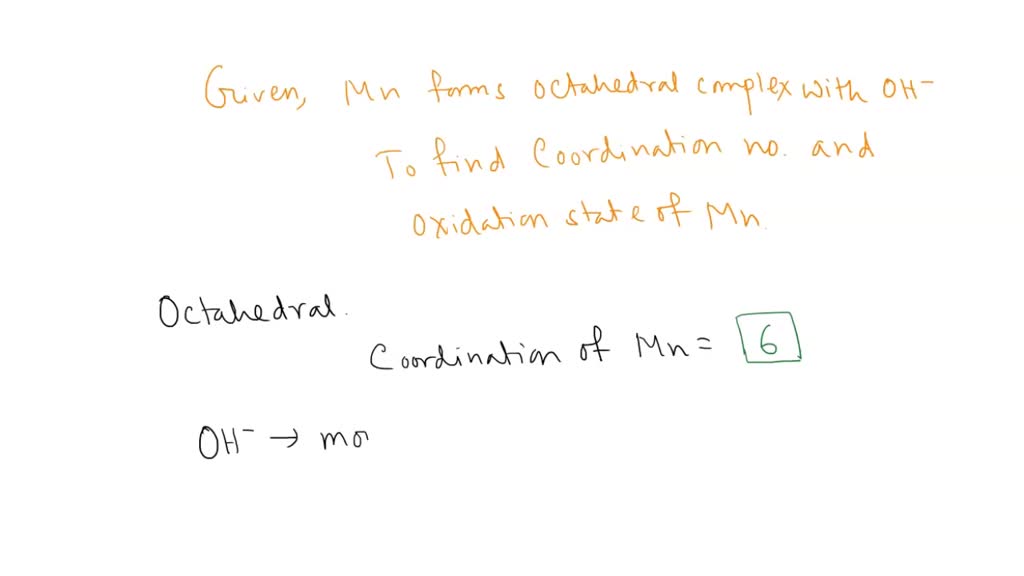 Given, Mn forms octahedral complex with OH⁻
To find Coordination no. and
oxidation state of Mn.
Octahedral.
Coordination of Mn = 6
OH⁻ → mo